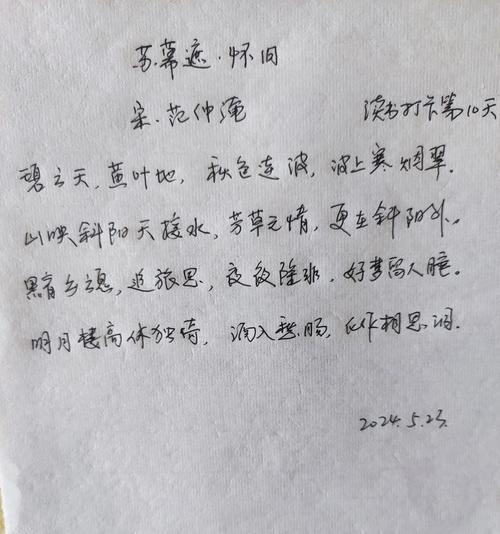 苏幕遮·怀旧
宋·范仲淹
读书打卡第10天
碧云天,黄叶地,秋色连波,波上寒烟翠.
山映斜阳天接水,芳草无情,更在斜阳外.
黯乡魂,追旅思,夜夜除非,好梦留人睡.
明月楼高休独倚,酒入愁肠,化作相思泪.
2024.5.23.